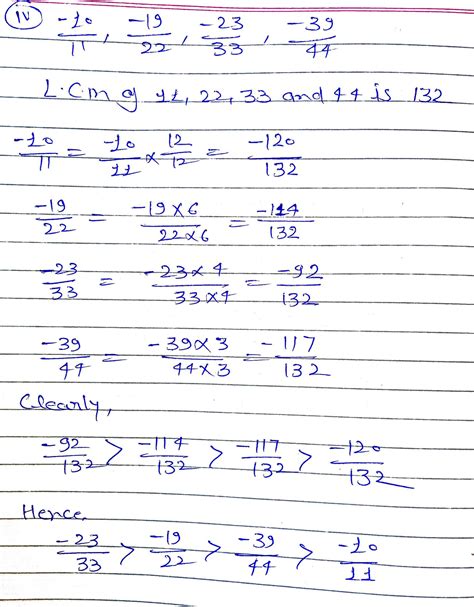 (iv) -10/11, -19/22, -23/33, -39/44
L.C.m of 11, 22, 33 and 44 is 132
-10/11 = -10/11 × 12/12 = -120/132
-19/22 = -19×6/22×6 = -114/132
-23/33 = -23×4/33×4 = -92/132
-39/44 = -39×3/44×3 = -117/132
Clearly,
-92/132 > -114/132 > -117/132 > -120/132
Hence,
-23/33 > -19/22 > -39/44 > -10/11